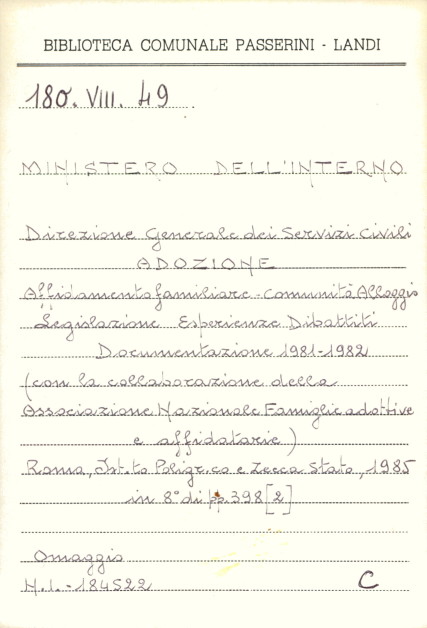 BIBLIOTECA COMUNALE PASSERINI - LANDI
180. VIII. 49
MINISTERO DELL'INTERNO
Direzione Generale dei Servizi Civili
ADOZIONE
Affidamento familiare - Comunità Alloggio
Legislazione Esperienze Dibattiti
Documentazione 1981-1982
(con la collaborazione della
Associazione Nazionale Famiglie adottive
e affidatarie)
Roma, Ist.to Poligr.co e Zecca Stato, 1985
in 8° di pp. 398 [2]
Omaggio
N.I. - 184522 C